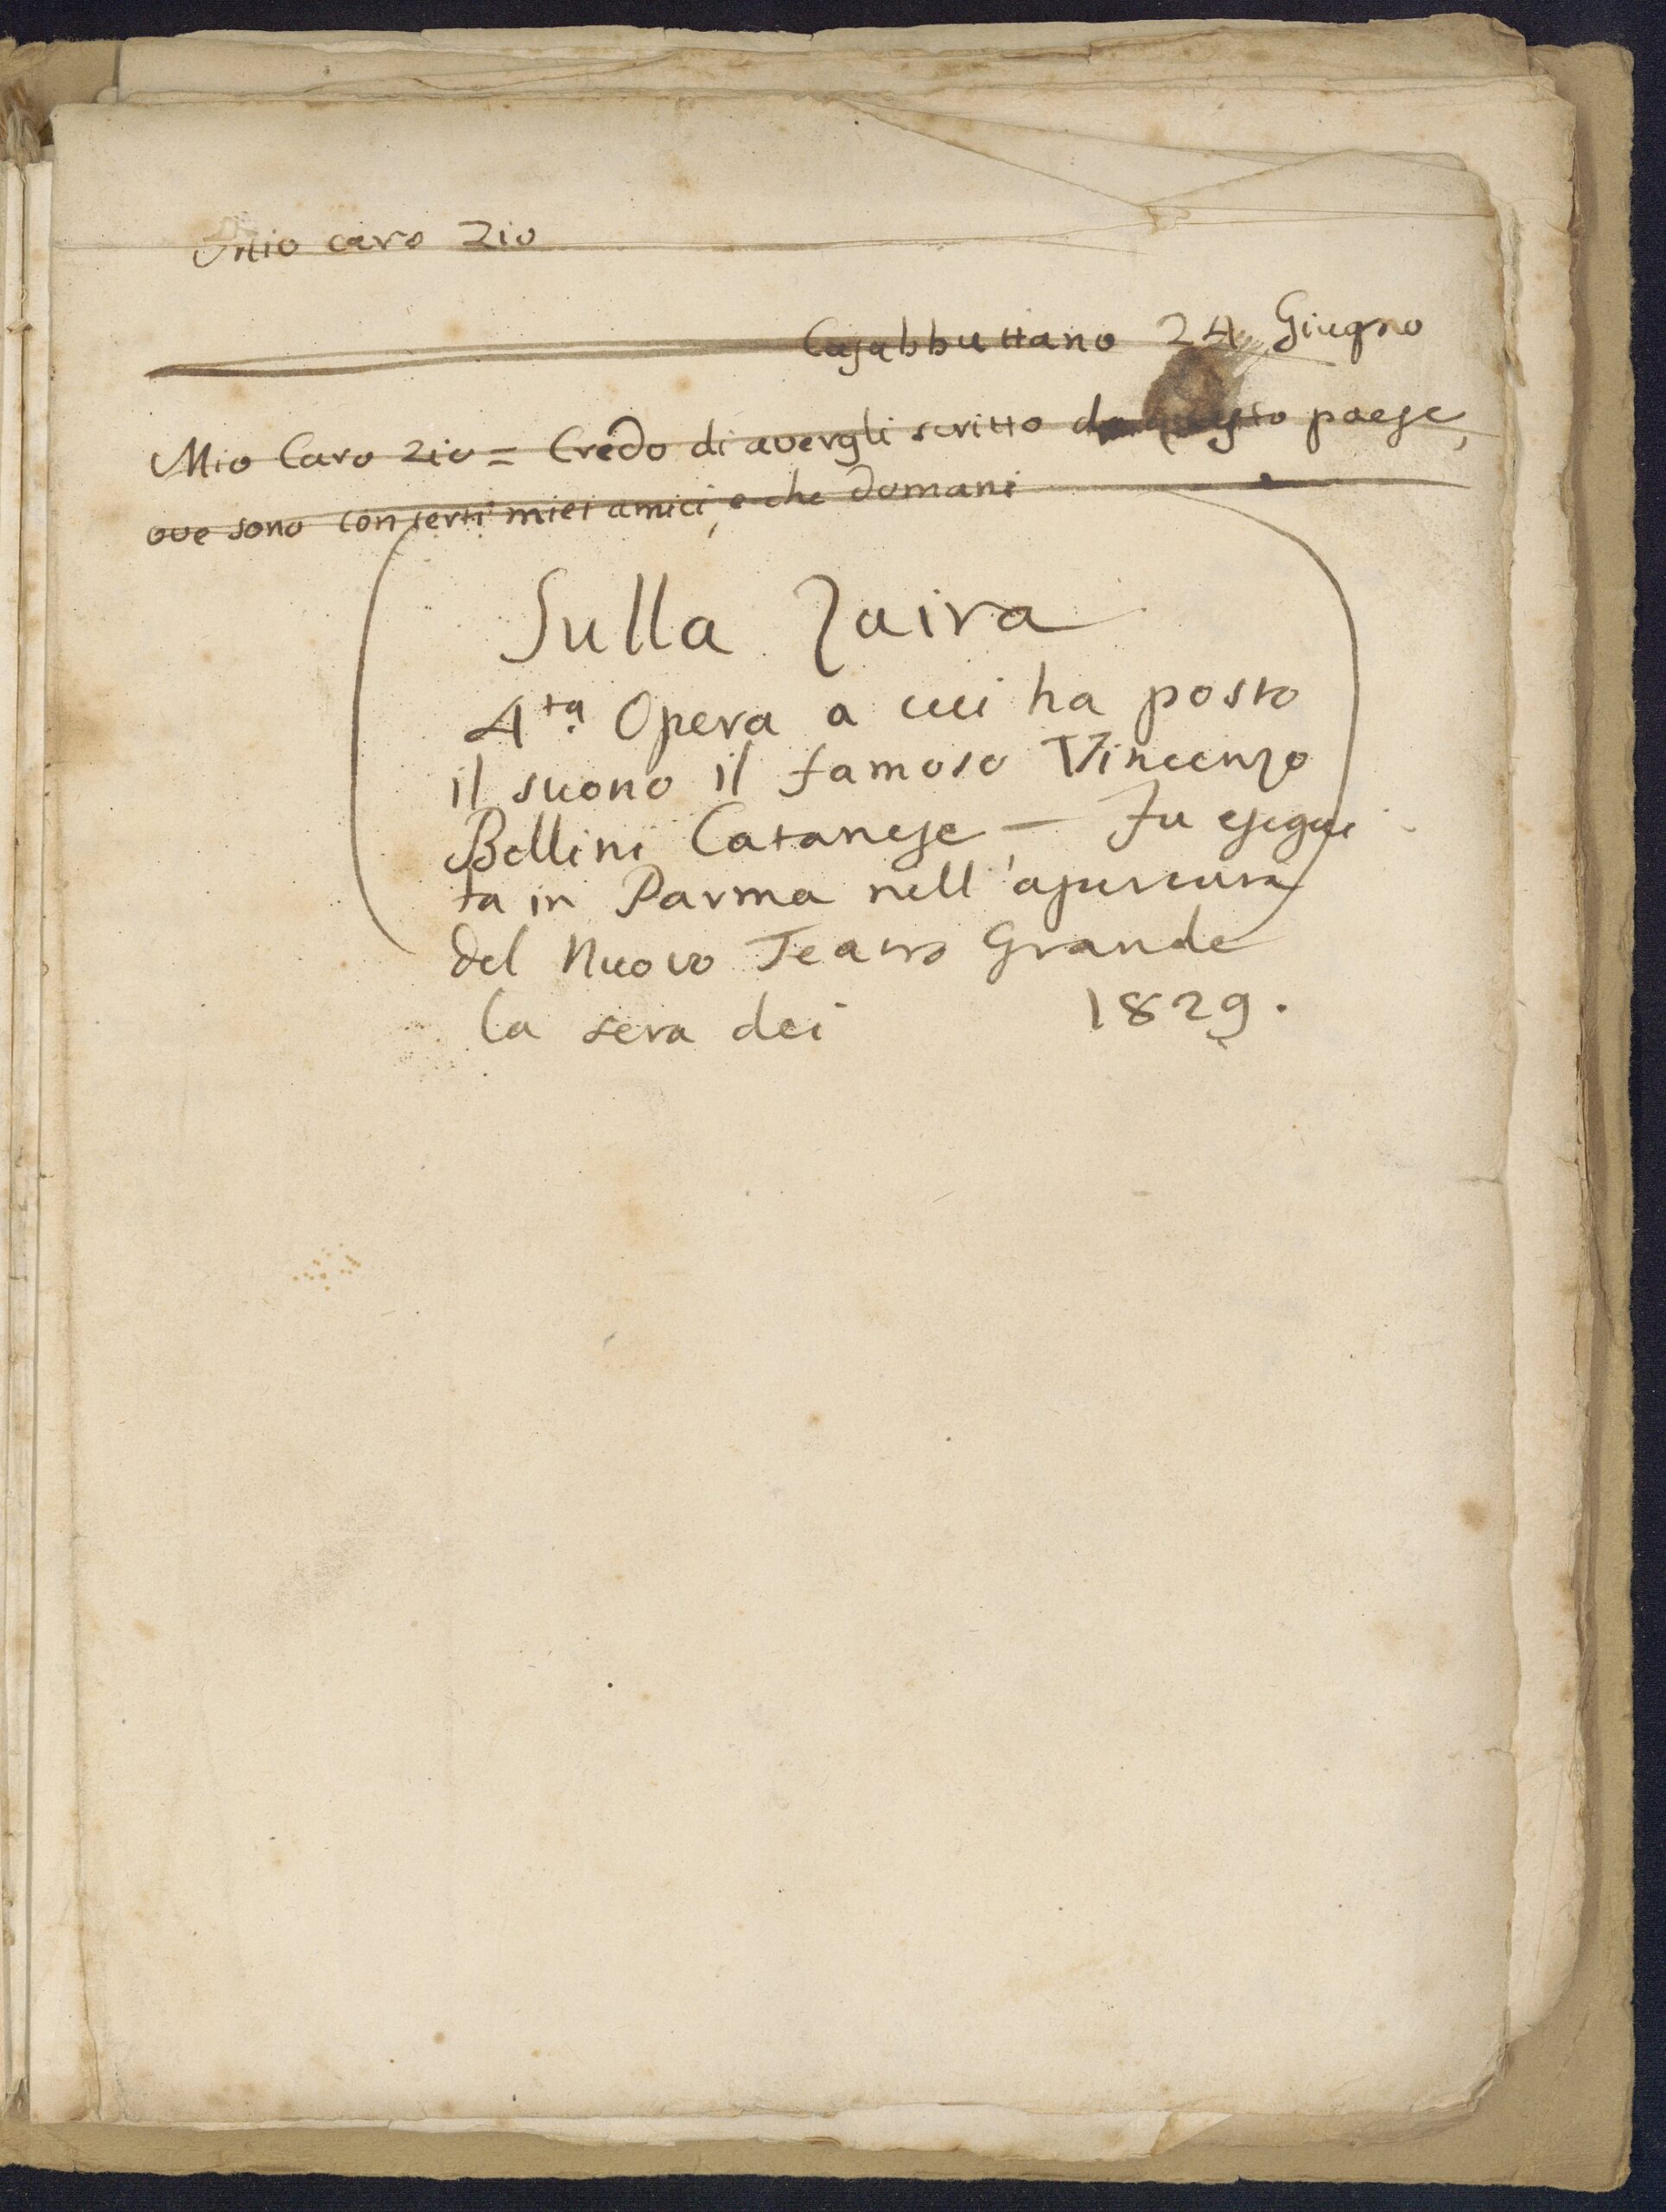 Mio caro Zio
Casabbuttano 24 Giugno
Mio Caro Zio = Credo di avergli scritto da questo paese,
ove sono con certi miei amici, e che domani
Sulla Zaira
4.ta Opera a cui ha posto
il suono il famoso Vincenzo
Bellini Catanese – Fu esegui
ta in Parma nell'apertura
del Nuovo Teatro Grande
la sera dei 1829.